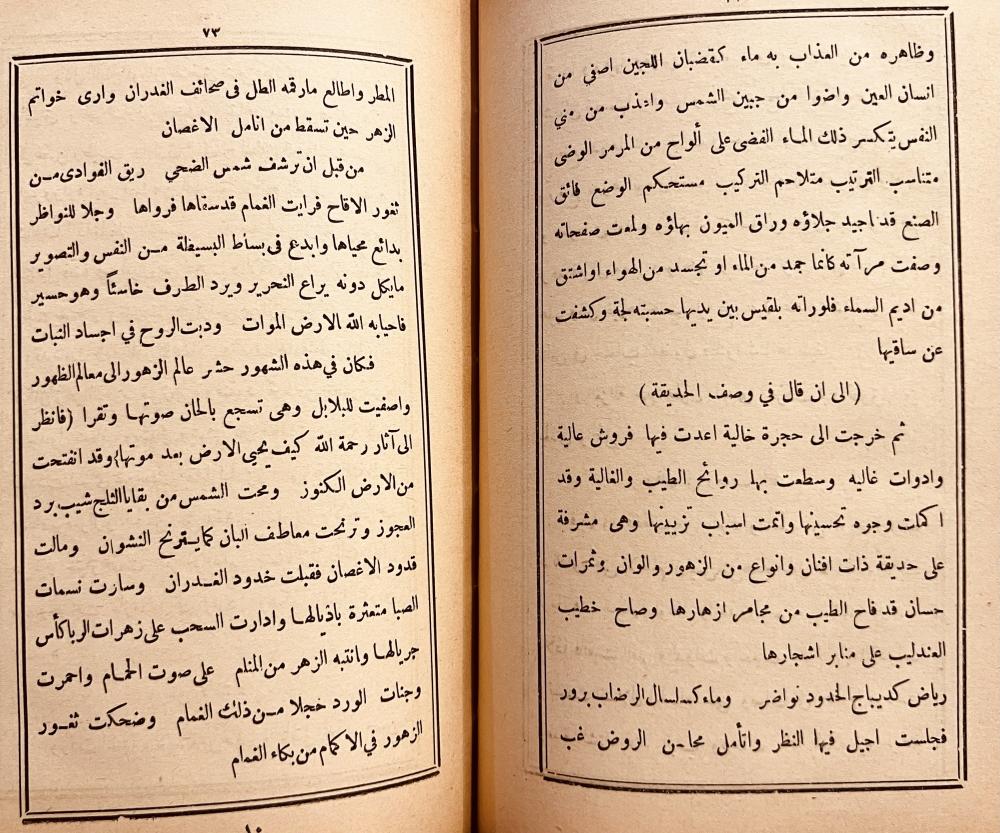 وظاهره من العذاب به ماء كقضبان اللجين اصفي من
انسان العين واضوا من جبين الشمس واعذب من مني
النفس يتكسر ذلك الماء الفضي على ألواح من المرمر الوضي
متناسب الترتيب متلاحم التركيب مستحكم الوضع فائق
الصنع قد اجيد جلاؤه وراق العيون بهاؤه ولمعت صفحاته
وصفت مرآته كانما جمد من الماء او تجسد من الهواء او اشتق
من اديم السماء فلوراته بلقيس بين يديها حسبته لجة وكشفت
عن ساقيها
( الى ان قال في وصف الحديقة )
ثم خرجت الى حجرة خالية اعدت فيها فروش عالية
وادوات غاليه وسطعت بها روائح الطيب والغالية وقد
اكملت وجوه تحسينها واتمت اسباب تزيينها وهى مشرفة
على حديقة ذات افنان وانواع من الزهور والوان وثمرات
حسان قد فاح الطيب من مجامر ازهارها وصاح خطيب
العندليب على منابر اشجارها
رياض كديباج الخدود نواضر وماء كسلسال الرضاب برور
فجلست اجيل فيها النظر واتأمل محاسن الروض غب
٧٣
المطر واطالع مارقمه الطل فى صحائف الغدران وارى خواتم
الزهر حين تسقط من انامل الاغصان
من قبل ان ترشف شمس الضحي ريق الغوادى من
ثغور الاقاح فرايت الغمام قد سقاها فرواها وجلا للنواظر
بدائع محياها وابدع فى بساط البسيطة من النفس والتصوير
مايكل دونه يراع التحرير ويرد الطرف خاسئاً وهو حسير
فاحيا به الله الارض الموات ودبت الروح في اجساد النبات
فكان في هذه الشهور حشر عالم الزهور الى معالم الظهور
واصغيت للبلابل وهى تسجع بالحان صوتها وتقرا (فانظر
الى آثار رحمة الله كيف يحيى الارض بعد موتها) وقد انفتحت
من الارض الكنوز ومحت الشمس من بقايا الثلج شيب برد
العجوز وترنحت معاطف البان كما يترنح النشوان ومالت
قدود الاغصان فقبلت خدود الغدران وسارت نسمات
الصبا متعثرة باذيالها وادارت السحب على زهرات الربا كأس
جريالها وانتبه الزهر من المنام على صوت الحمام واحمرت
وجنات الورد خجلا من ذلك الغمام وضحكت ثغور
الزهور في الاكمام من بكاء الغمام
١٠